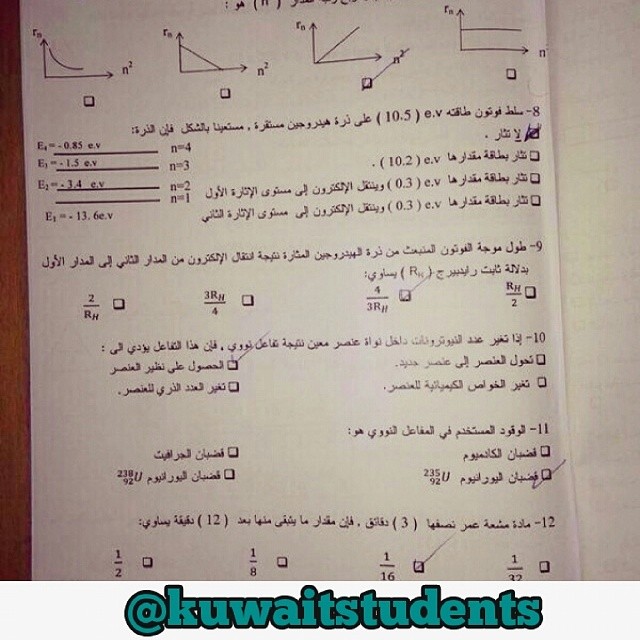 ( n ) هو :
rₙ n²
rₙ n²
rₙ n²
rₙ n
8- سلط فوتون طاقته e.v ( 10.5 ) على ذرة هيدروجين مستقرة , مستعينا بالشكل فإن الذرة:
لا تثار .
تثار بطاقة مقدارها e.v ( 10.2 ) .
تثار بطاقة مقدارها e.v ( 0.3 ) وينتقل الإلكترون إلى مستوى الإثارة الأول
تثار بطاقة مقدارها e.v ( 0.3 ) وينتقل الإلكترون إلى مستوى الإثارة الثاني
E₄ = - 0.85 e.v n=4
E₃ = - 1.5 e.v n=3
E₂ = - 3.4 e.v n=2
n=1
E₁ = - 13.6e.v
9- طول موجة الفوتون المنبعث من ذرة الهيدروجين المثارة نتيجة انتقال الإلكترون من المدار الثاني إلى المدار الأول
بدلالة ثابت رايدبيرج ( R_H ) يساوي:
R_H/2 4/3R_H 3R_H/4 2/R_H
10- إذا تغير عدد النيوترونات داخل نواة عنصر معين نتيجة تفاعل نووي , فإن هذا التفاعل يؤدي الى :
تحول العنصر إلى عنصر جديد. الحصول على نظير العنصر
تغير الخواص الكيميائية للعنصر. تغير العدد الذري للعنصر.
11- الوقود المستخدم في المفاعل النووي هو:
قضبان الكادميوم قضبان الجرافيت
قضبان اليورانيوم ²³⁵₉₂U قضبان اليورانيوم ²³⁸₉₂U
12- مادة مشعة عمر نصفها ( 3 ) دقائق , فإن مقدار ما يتبقى منها بعد ( 12 ) دقيقة يساوي:
1/32 1/16 1/8 1/2
@kuwaitstudents